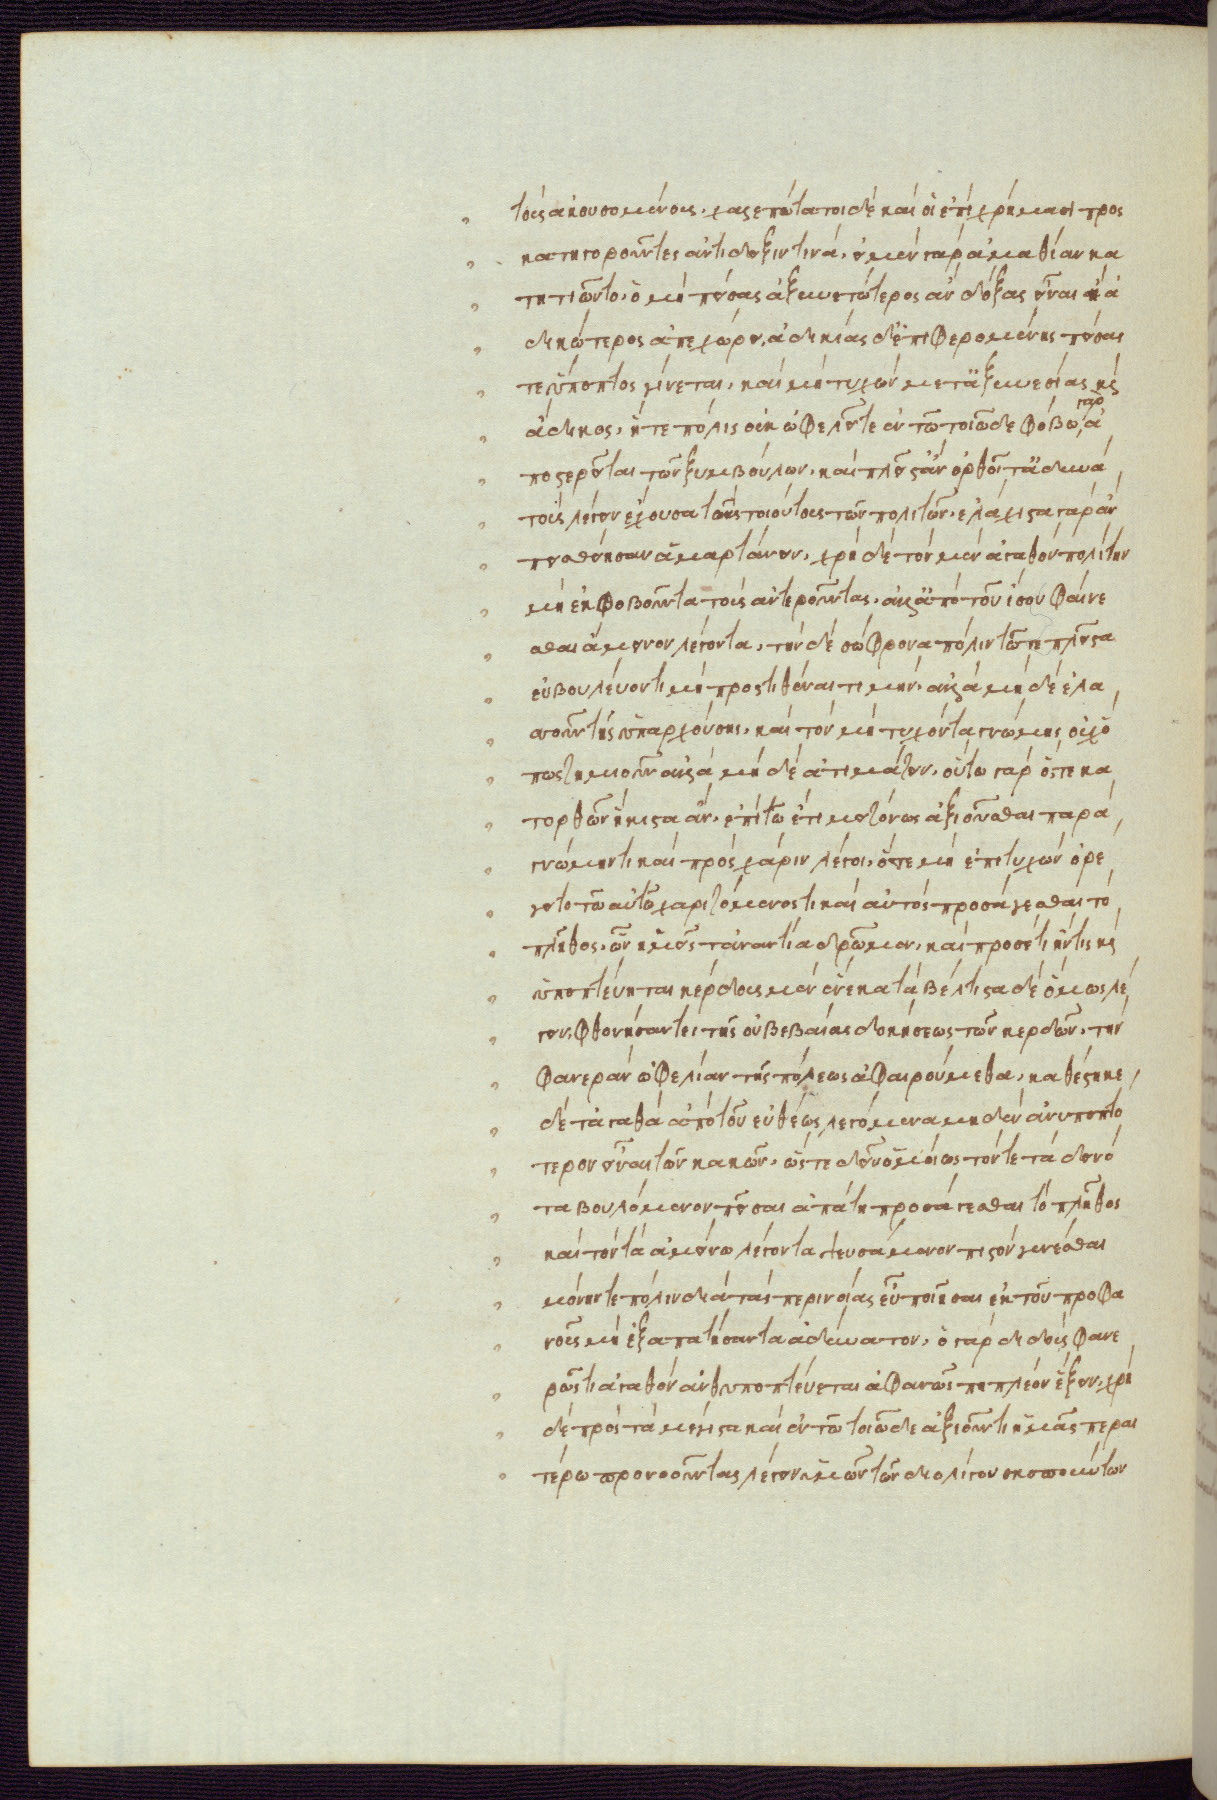 τοὺς ἀκουσομένους. χαλεπώτατοι δὲ καὶ οἱ ἐπὶ χρήμασι προς
κατηγοροῦντες ἀντίδειξιν τινά. εἰ μὲν γὰρ ἀμαθίαν κα
τητιῶντο, ὁ μὴ πείσας ἀξυνετώτερος ἂν δόξας εἶναι ἢ ἀ
δικώτερος ἀπεχώρει, ἀδικίας δ' ἐπιφερομένης πείσας
τε ὕποπτος γίνεται, καὶ μὴ τυχὼν μετὰ ἀξυνεσίας καὶ
ἄδικος. ἥ τε πόλις οὐκ ὠφελεῖται ἐν τῶ τοιῶδε φόβω, γὰρ ἀ
ποστερεῖται τῶν ξυμβούλων. καὶ πλεῖστ' ἂν ὀρθοῖτο ἀδυνά
τους λέγειν ἔχουσα τοὺς τοιούτους τῶν πολιτῶν. ἐλάχιστα γὰρ ἂν
πεισθείησαν ἁμαρτάνειν. χρὴ δὲ τὸν μὲν ἀγαθὸν πολίτην
μὴ ἐκφοβοῦντα τοὺς ἀντεροῦντας, ἀλλ' ἀπὸ τοῦ ἴσου φαίνε
σθαι ἄμεινον λέγοντα, τὴν δὲ σώφρονα πόλιν τῶ τε πλεῖστα
εὐβουλεύοντι μὴ προστιθέναι τιμήν, ἀλλὰ μὴ δὲ ἐλα
σσοῦν τῆς ὑπαρχούσης, καὶ τὸν μὴ τυχόντα γνώμης οὐχ ὅ
πως ζημιοῦν ἀλλὰ μὴ δὲ ἀτιμάζειν. οὕτω γὰρ ὅστε κα
τορθῶν ἥκιστα ἂν, ἐπὶ τῶ ἔτι μειζόνως ἀξιοῦσθαι παρὰ
γνώμην τι καὶ πρὸς χάριν λέγοι, ὅστε μὴ ἐπιτυχὼν ὀρέ
γοιτο τῶ αὐτῶ χαριζόμενος τι καὶ αὐτὸς προσάγεσθαι τὸ
πλῆθος. ὧν ἡμεῖς τἀναντία δρῶμεν. καὶ προσέτι ἤν τις καὶ
ὑποπτεύηται κέρδους μὲν ἕνεκα τὰ βέλτιστα δὲ ὅμως λέ
γειν, φθονήσαντες τῆς οὐ βεβαίας δοκήσεως τῶν κερδῶν, τὴν
φανερὰν ὠφελίαν τῆς πόλεως ἀφαιρούμεθα, καθέστηκε
δὲ τἀγαθὰ ἀπὸ τοῦ εὐθέως λεγόμενα μηδὲν ἀνυποπτό
τερον εἶναι τῶν κακῶν, ὥστε δεῖν ὁμοίως τόν τε τὰ δεινό
τα βουλόμενον πεῖσαι ἀπάτη προσάγεσθαι τὸ πλῆθος
καὶ τὸν τὰ ἀμείνω λέγοντα ψευσάμενον πιστὸν γενέσθαι
μόνην τε πόλιν διὰ τὰς περινοίας εὖ ποιῆσαι ἐκ τοῦ προφα
νοῦς μὴ ἐξαπατήσαντα ἀδύνατον. ὁ γὰρ διδοὺς φανε
ρῶς τι ἀγαθὸν ἀνθυποπτεύεται ἀφανῶς πη πλέον ἕξειν. χρὴ
δὲ πρὸς τὰ μέγιστα καὶ ἐν τῶ τοιῶδε ἀξιοῦντι ἡμᾶς περαι
τέρω προνοοῦντας λέγειν ὑμῶν τῶν δι' ὀλίγου σκοπούντων